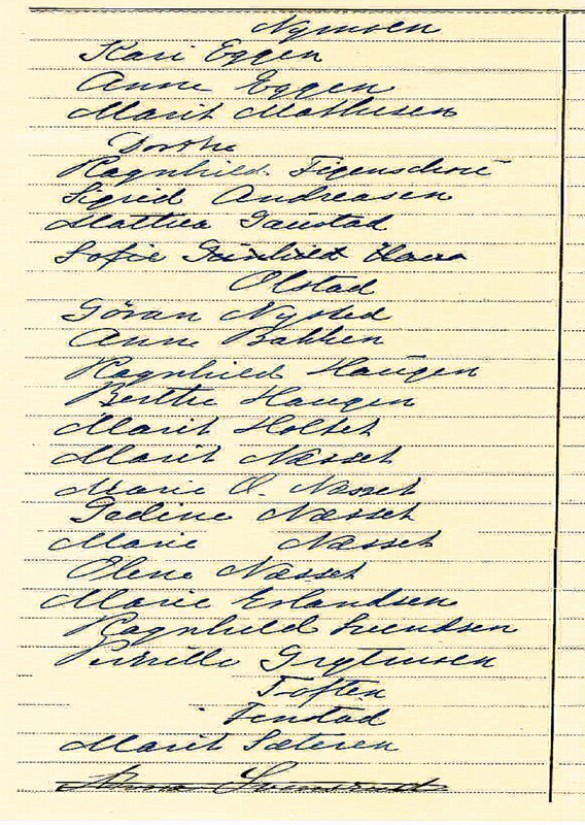 Nymoen
Kari Eggen
Anne Eggen
Marit Mathisen
Dorthe
Ragnhild Figenschou
Sigrid Andreasen
Mathea Taustad
Sofie
Olstad
Göran Nysted
Anne Bakken
Ragnhild Haugen
Berthe Haugen
Marit Holtet
Marit Næsset
Marie O. Næsset
Næsset
Marie Næsset
Olene Næsset
Marie Erlandsen
Ragnhild Svendsen
Pernille
Toften
Finstad
Marit Sæteren
Anna